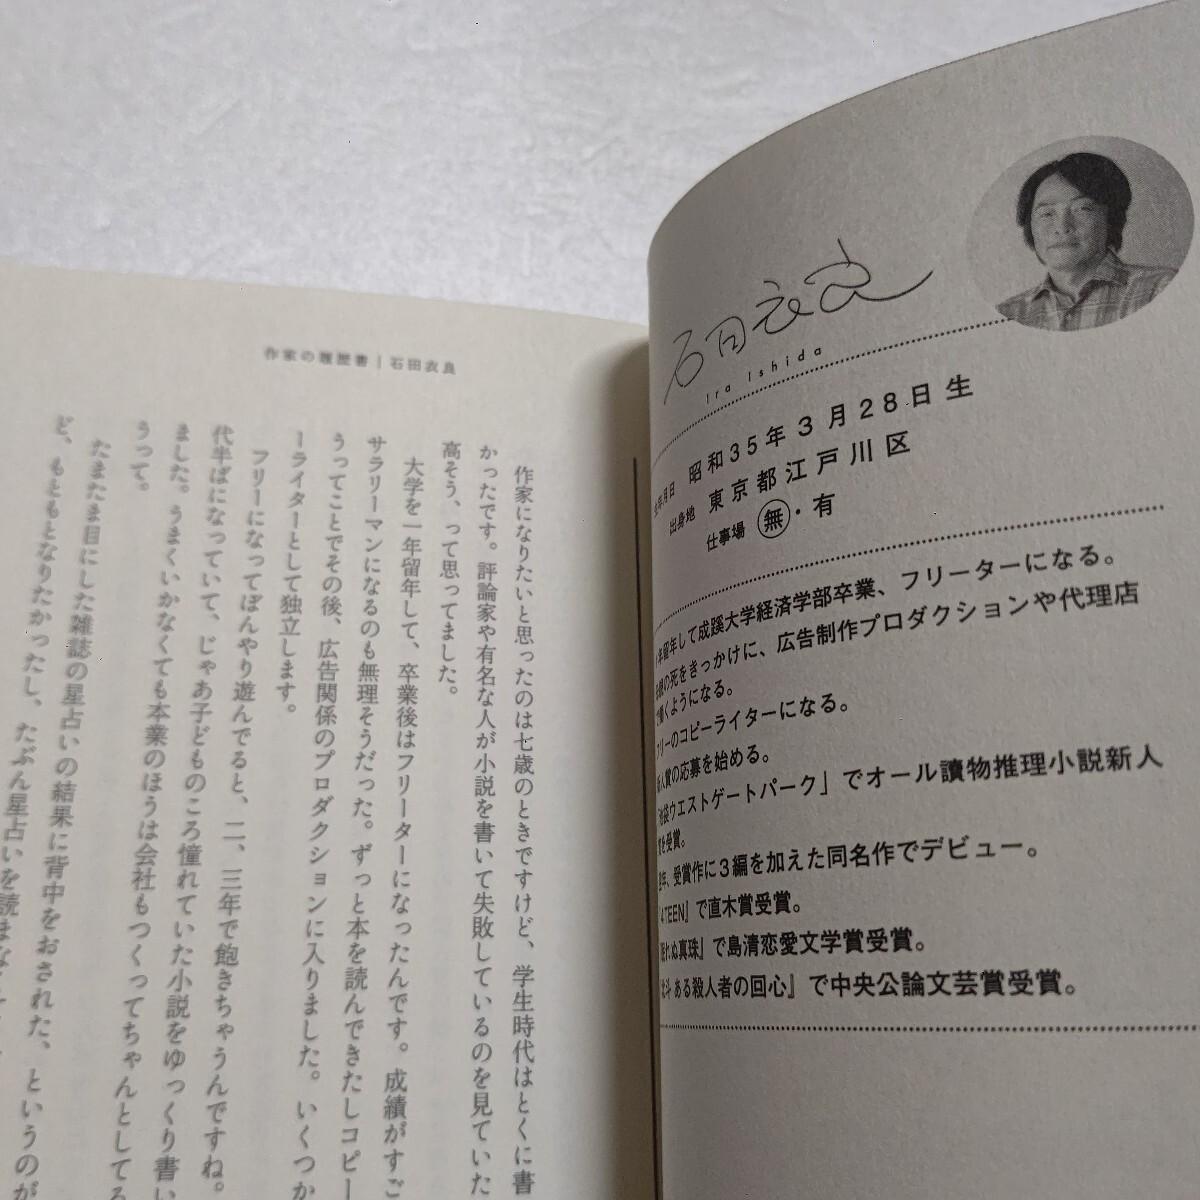 石田衣良
Ira Ishida
生年月日 昭和35年3月28日生
出身地 東京都江戸川区
仕事場 無・有
年留年して成蹊大学経済学部卒業、フリーターになる。
の死をきっかけに、広告制作プロダクションや代理店
で働くようになる。
フリーのコピーライターになる。
新人賞の応募を始める。
池袋ウエストゲートパーク」でオール讀物推理小説新人
賞を受賞。
年、受賞作に3編を加えた同名作でデビュー。
4TEEN』で直木賞受賞。
眠れぬ真珠』で島清恋愛文学賞受賞。
北斗 ある殺人者の回心』で中央公論文芸賞受賞。
作家の履歴書｜石田衣良
作家になりたいと思ったのは七歳のときですけど、学生時代はとくに書
かったです。評論家や有名な人が小説を書いて失敗しているのを見ていた
高そう、って思ってました。
大学を一年留年して、卒業後はフリーターになったんです。成績がすご
サラリーマンになるのも無理そうだった。ずっと本を読んできたしコピー
うってことでその後、広告関係のプロダクションに入りました。いくつか
ーライターとして独立します。
フリーになってぼんやり遊んでると、二、三年で飽きちゃうんですね。
代半ばになっていて、じゃあ子どものころ憧れていた小説をゆっくり書い
ました。うまくいかなくても本業のほうは会社もつくってちゃんとしてる
うって。
たまたま目にした雑誌の星占いの結果に背中をおされた、というのが
ど、もともとなりたかったし、たぶん星占いを読まなく